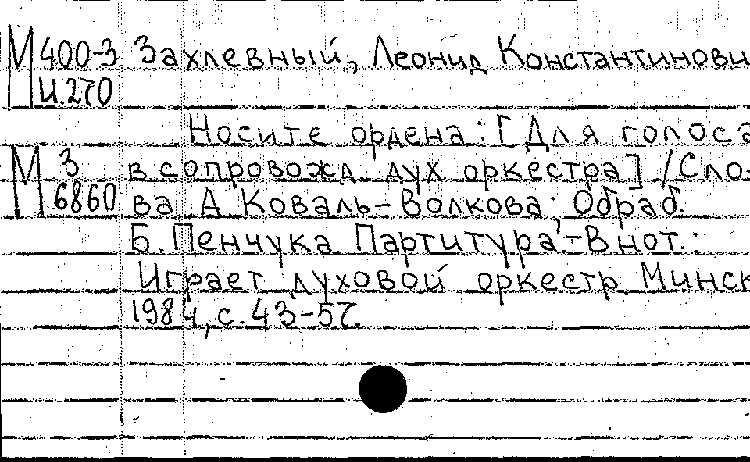 М 400-3 Захлевный, Леонид Константинови
И.270
Носите ордена: [Для голоса
М 3 в сопровожд. дух оркестра] / Сло-
6860 ва А Коваль-Волкова; Обраб.
Б. Пенчука Партитура,-В нот.:
Играет духовой оркестр. Минск
1984, с. 43-57.